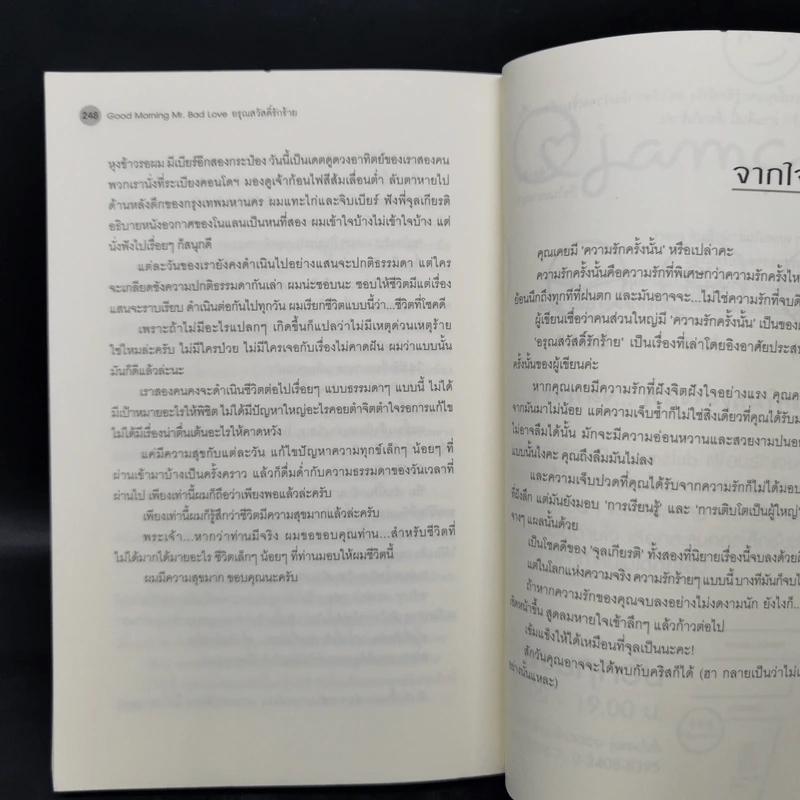 248 Good Morning Mr. Bad Love อรุณสวัสดิ์รักร้าย
หุงข้าวรอผม มีเบียร์อีกสองกระป๋อง วันนี้เป็นเดตดูดวงอาทิตย์ของเราสองคน
พวกเรานั่งที่ระเบียงคอนโดฯ มองดูเจ้าก้อนไฟสีส้มเลื่อนต่ำ ลับตาหายไป
ด้านหลังตึกของกรุงเทพมหานคร ผมแทะไก่และจิบเบียร์ ฟังพี่จุลเกียรติ
อธิบายหนังอวกาศของโนแลนเป็นหนที่สอง ผมเข้าใจบ้างไม่เข้าใจบ้าง แต่
นั่งฟังไปเรื่อยๆ ก็สนุกดี
แต่ละวันของเรายังคงดำเนินไปอย่างแสนจะปกติธรรมดา แต่ใคร
จะเกลียดชังความปกติธรรมดากันเล่า ผมน่ะชอบนะ ชอบให้ชีวิตมีแต่เรื่อง
แสนจะราบเรียบ ดำเนินต่อกันไปทุกวัน ผมเรียกชีวิตแบบนี้ว่า...ชีวิตที่โชคดี
เพราะถ้าไม่มีอะไรแปลกๆ เกิดขึ้นก็แปลว่าไม่มีเหตุด่วนเหตุร้าย
ใช่ไหมล่ะครับ ไม่มีใครป่วย ไม่มีใครเจอกับเรื่องไม่คาดฝัน ผมว่าแบบนั้น
มันก็ดีแล้วล่ะนะ
เราสองคนคงจะดำเนินชีวิตต่อไปเรื่อยๆ แบบธรรมดาๆ แบบนี้ ไม่ได้
มีเป้าหมายอะไรให้พิชิต ไม่ได้มีปัญหาใหญ่อะไรคอยตำจิตตำใจรอการแก้ไข
ไม่ได้มีเรื่องน่าตื่นเต้นอะไรให้คาดหวัง
แค่มีความสุขกับแต่ละวัน แก้ไขปัญหาความทุกข์เล็กๆ น้อยๆ ที่
ผ่านเข้ามาบ้างเป็นครั้งคราว แล้วก็ดื่มด่ำกับความธรรมดาของวันเวลาที่
ผ่านไป เพียงเท่านี้ผมก็ถือว่าเพียงพอแล้วล่ะครับ
เพียงเท่านี้ผมก็รู้สึกว่าชีวิตมีความสุขมากแล้วล่ะครับ
พระเจ้า...หากว่าท่านมีจริง ผมขอขอบคุณท่าน...สำหรับชีวิตที่
ไม่ได้มากได้มายอะไร ชีวิตเล็กๆ น้อยๆ ที่ท่านมอบให้ผมชีวิตนี้
ผมมีความสุขมาก ขอบคุณนะครับ
จากใจ
คุณเคยมี 'ความรักครั้งนั้น' หรือเปล่าคะ
ความรักครั้งนั้นคือความรักที่พิเศษกว่าความรักครั้งไห
ย้อนนึกถึงทุกทีที่ฝนตก และมันอาจจะ...ไม่ใช่ความรักที่จบดี
ผู้เขียนเชื่อว่าคนส่วนใหญ่มี 'ความรักครั้งนั้น' เป็นของ
'อรุณสวัสดิ์รักร้าย' เป็นเรื่องที่เล่าโดยอิงอาศัยประส
ครั้งนั้นของผู้เขียนค่ะ
หากคุณเคยมีความรักที่ฝังจิตฝังใจอย่างแรง คุณค
จากมันมาไม่น้อย แต่ความเจ็บช้ำก็ไม่ใช่สิ่งเดียวที่คุณได้รับม
ไม่อาจลืมได้นั้น มักจะมีความอ่อนหวานและสวยงามปนอย
แบบนั้นไงคะ คุณถึงลืมมันไม่ลง
และความเจ็บปวดที่คุณได้รับจากความรักก็ไม่ได้มอบ
ที่ฝังลึก แต่มันยังมอบ 'การเรียนรู้' และ 'การเติบโตเป็นผู้ใหญ่'
จางๆ แผลนั้นด้วย
เป็นโชคดีของ 'จุลเกียรติ' ทั้งสองที่นิยายเรื่องนี้จบลงด้วย
แต่ในโลกแห่งความจริง ความรักร้ายๆ แบบนี้ บางทีมันก็จบไ
ถ้าหากความรักของคุณจบลงอย่างไม่งดงามนัก ยังไงก็...
เชิดหน้าขึ้น สูดลมหายใจเข้าลึกๆ แล้วก้าวต่อไป
เข้มแข็งให้ได้เหมือนที่จุลเป็นนะคะ!
สักวันคุณอาจจะได้พบกับคริสก็ได้ (ฮา กลายเป็นว่าไม่เ
อย่างนั้นแหละ)